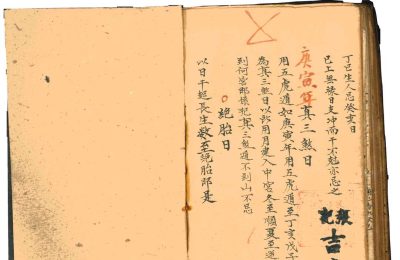 丁巳生人忌癸亥日
已上無祿日支冲而干不尅亦忌之
庚寅年真三煞日
用五虎遁如庚寅年用五虎遁至丁亥戊子
為真三煞日以所用月建入中宮冬至順夏至逆
到何宮那樣犯真三煞遁不到山不忌
絕胎日
以日干起長生數至絕胎即是